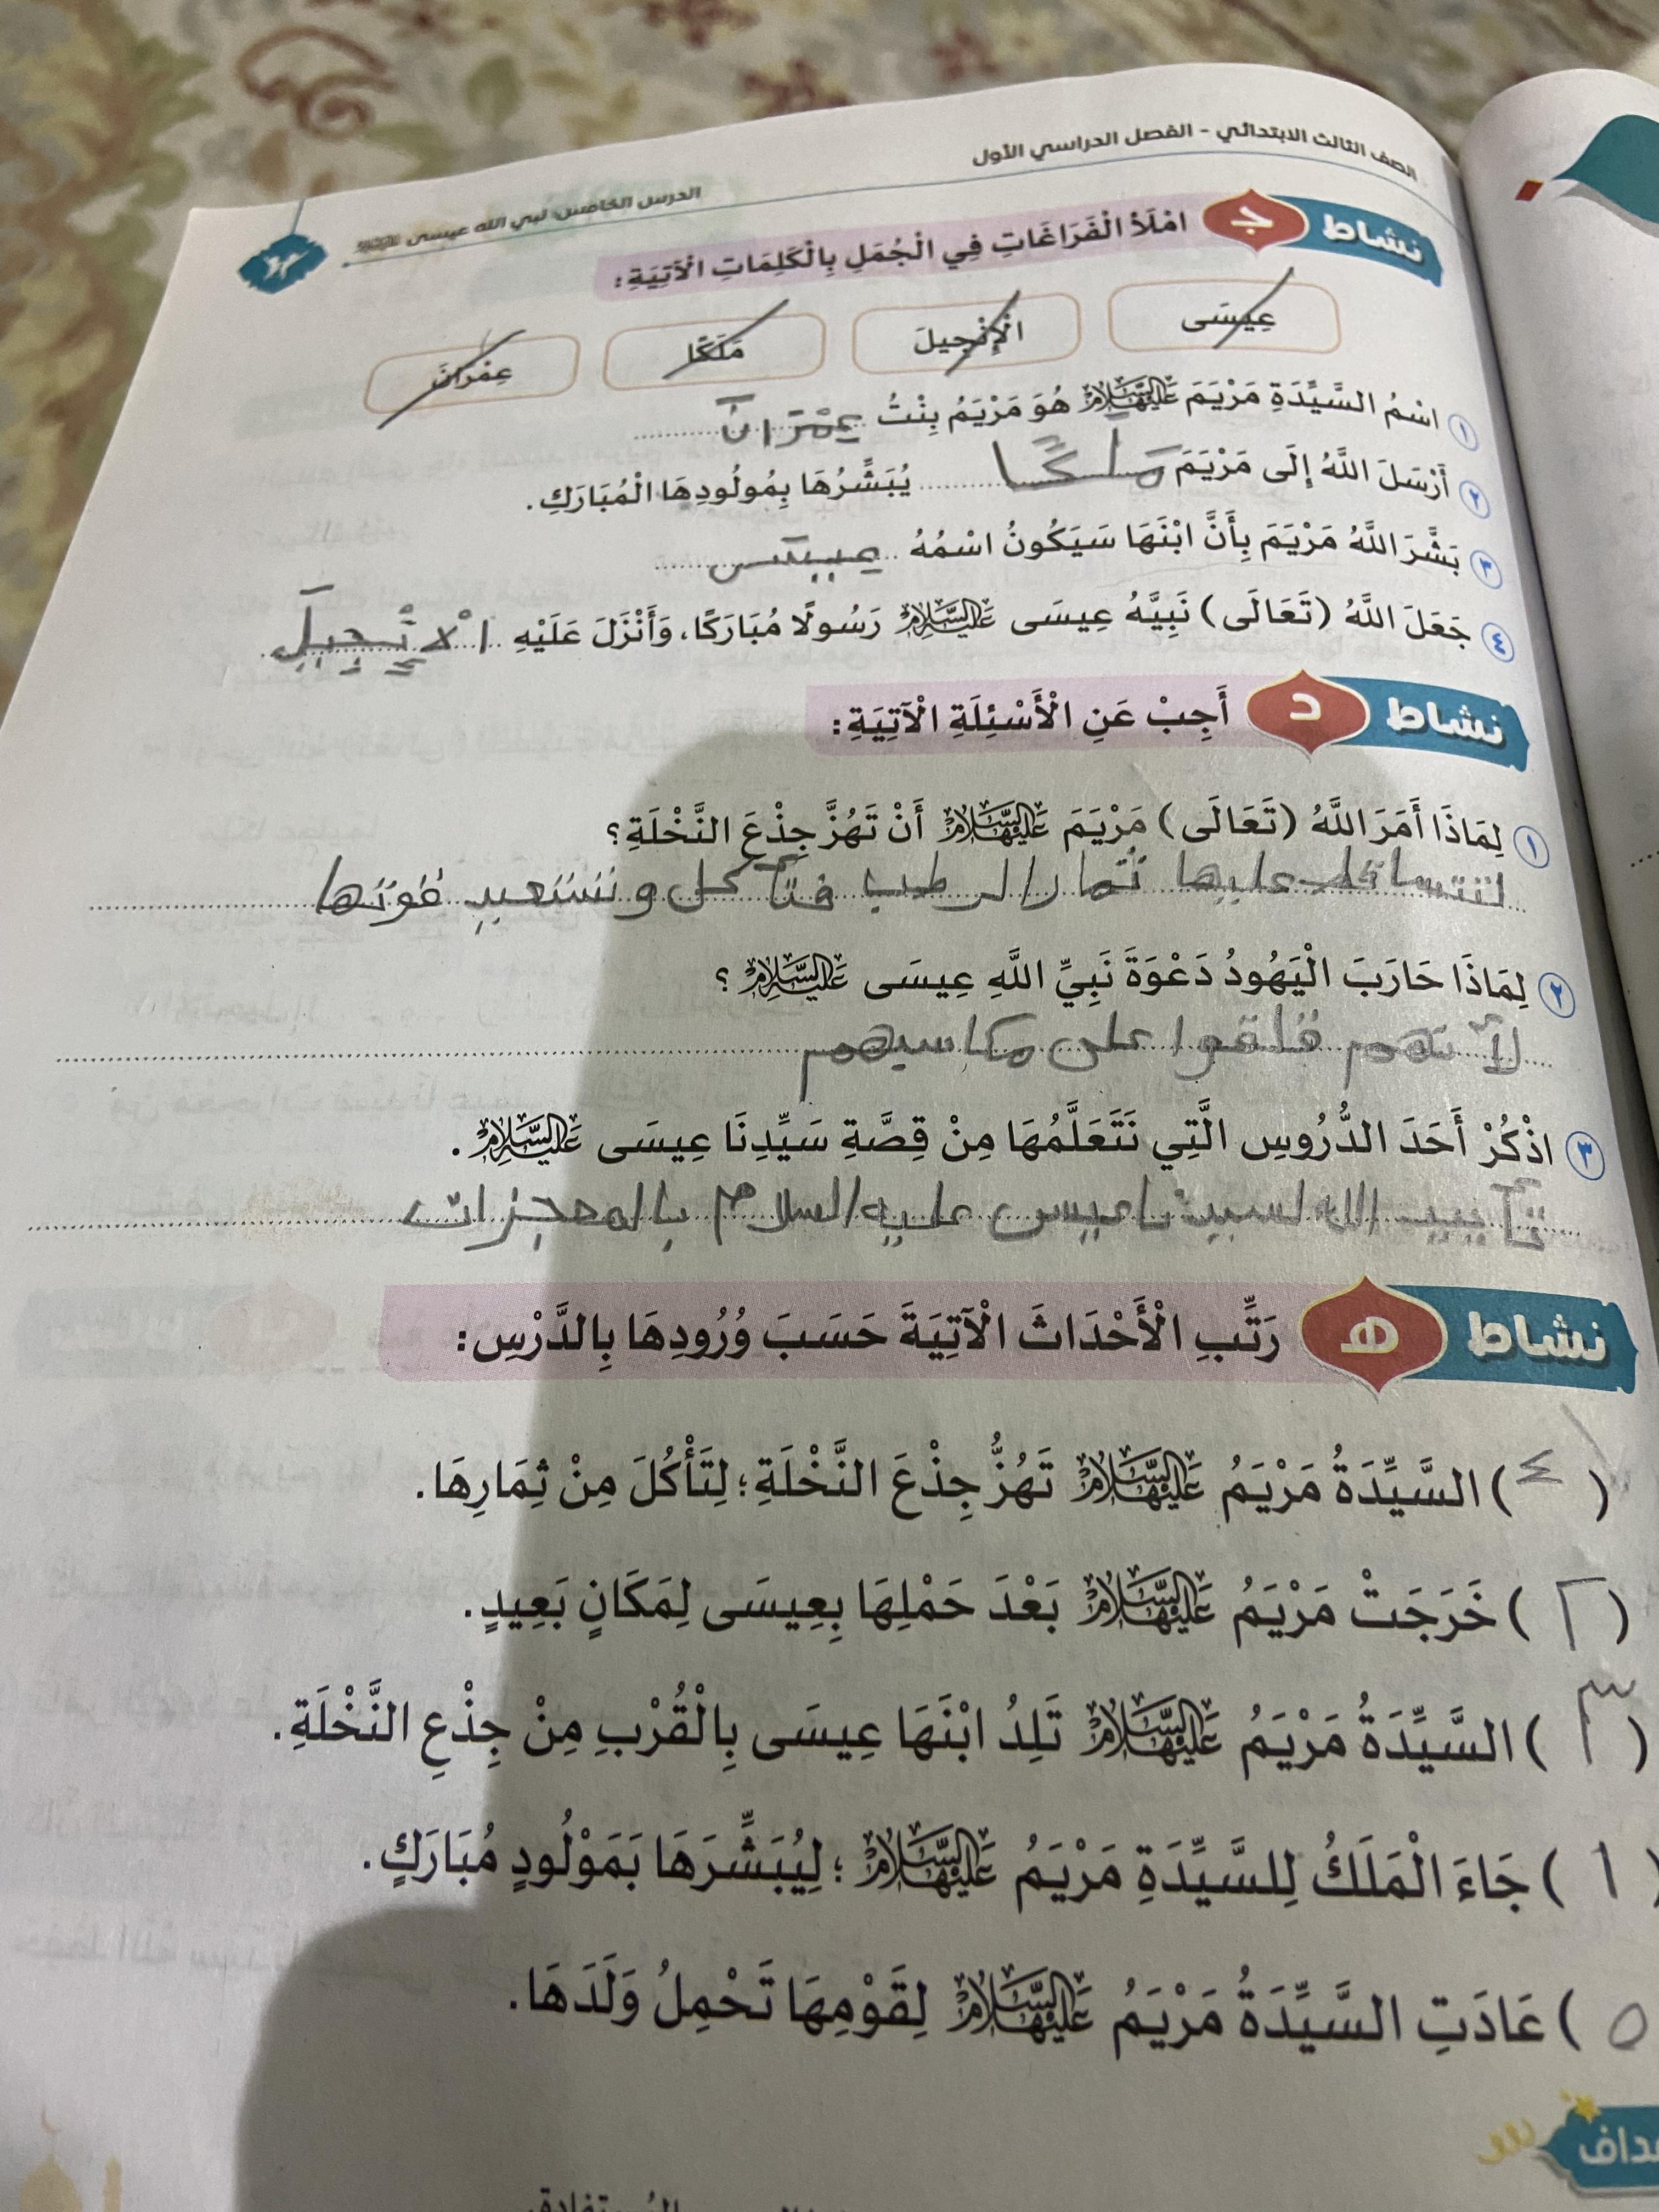 الصف الثالث الابتدائي - الفصل الدراسي الأول
الدرس الخامس: نبي الله عيسى
نشاط ج امْلَأِ الْفَرَاغَاتِ فِي الْجُمَلِ بِالْكَلِمَاتِ الْآتِيَةِ:
عِيسَى الْإِنْجِيلَ مَلَكًا عِمْرَانَ
١ اسْمُ السَّيِّدَةِ مَرْيَمَ عَلَيْهَا السَّلَامُ هُوَ مَرْيَمُ بِنْتُ عِمْرَانَ
٢ أَرْسَلَ اللَّهُ إِلَى مَرْيَمَ مَلَكًا يُبَشِّرُهَا بِمُولُودِهَا الْمُبَارَكِ.
٣ بَشَّرَ اللَّهُ مَرْيَمَ بِأَنَّ ابْنَهَا سَيَكُونُ اسْمُهُ عيسى
٤ جَعَلَ اللَّهُ (تَعَالَى) نَبِيَّهُ عِيسَى عَلَيْهِ السَّلَامُ رَسُولًا مُبَارَكًا، وَأَنْزَلَ عَلَيْهِ الْإِنْجِيلَ
نشاط د أَجِبْ عَنِ الْأَسْئِلَةِ الْآتِيَةِ:
١ لِمَاذَا أَمَرَ اللَّهُ (تَعَالَى) مَرْيَمَ عَلَيْهَا السَّلَامُ أَنْ تَهُزَّ جِذْعَ النَّخْلَةِ؟
لتتساقط عليها ثمار الرطب فتأكل وتستعيد قوتها
٢ لِمَاذَا حَارَبَ الْيَهُودُ دَعْوَةَ نَبِيِّ اللَّهِ عِيسَى عَلَيْهِ السَّلَامُ؟
لأنهم قلقوا على مكاسبهم
٣ اذْكُرْ أَحَدَ الدُّرُوسِ الَّتِي نَتَعَلَّمُهَا مِنْ قِصَّةِ سَيِّدِنَا عِيسَى عَلَيْهِ السَّلَامُ.
تأييد الله لسيدنا عيسى عليه السلام بالمعجزات
نشاط هـ رَتِّبِ الْأَحْدَاثَ الْآتِيَةَ حَسَبَ وُرُودِهَا بِالدَّرْسِ:
(٤) السَّيِّدَةُ مَرْيَمُ عَلَيْهَا السَّلَامُ تَهُزُّ جِذْعَ النَّخْلَةِ؛ لِتَأْكُلَ مِنْ ثِمَارِهَا.
(٢) خَرَجَتْ مَرْيَمُ عَلَيْهَا السَّلَامُ بَعْدَ حَمْلِهَا بِعِيسَى لِمَكَانٍ بَعِيدٍ.
(٣) السَّيِّدَةُ مَرْيَمُ عَلَيْهَا السَّلَامُ تَلِدُ ابْنَهَا عِيسَى بِالْقُرْبِ مِنْ جِذْعِ النَّخْلَةِ.
(١) جَاءَ الْمَلَكُ لِلسَّيِّدَةِ مَرْيَمُ عَلَيْهَا السَّلَامُ؛ لِيُبَشِّرَهَا بَمَوْلُودٍ مُبَارَكٍ.
(٥) عَادَتِ السَّيِّدَةُ مَرْيَمُ عَلَيْهَا السَّلَامُ لِقَوْمِهَا تَحْمِلُ وَلَدَهَا.